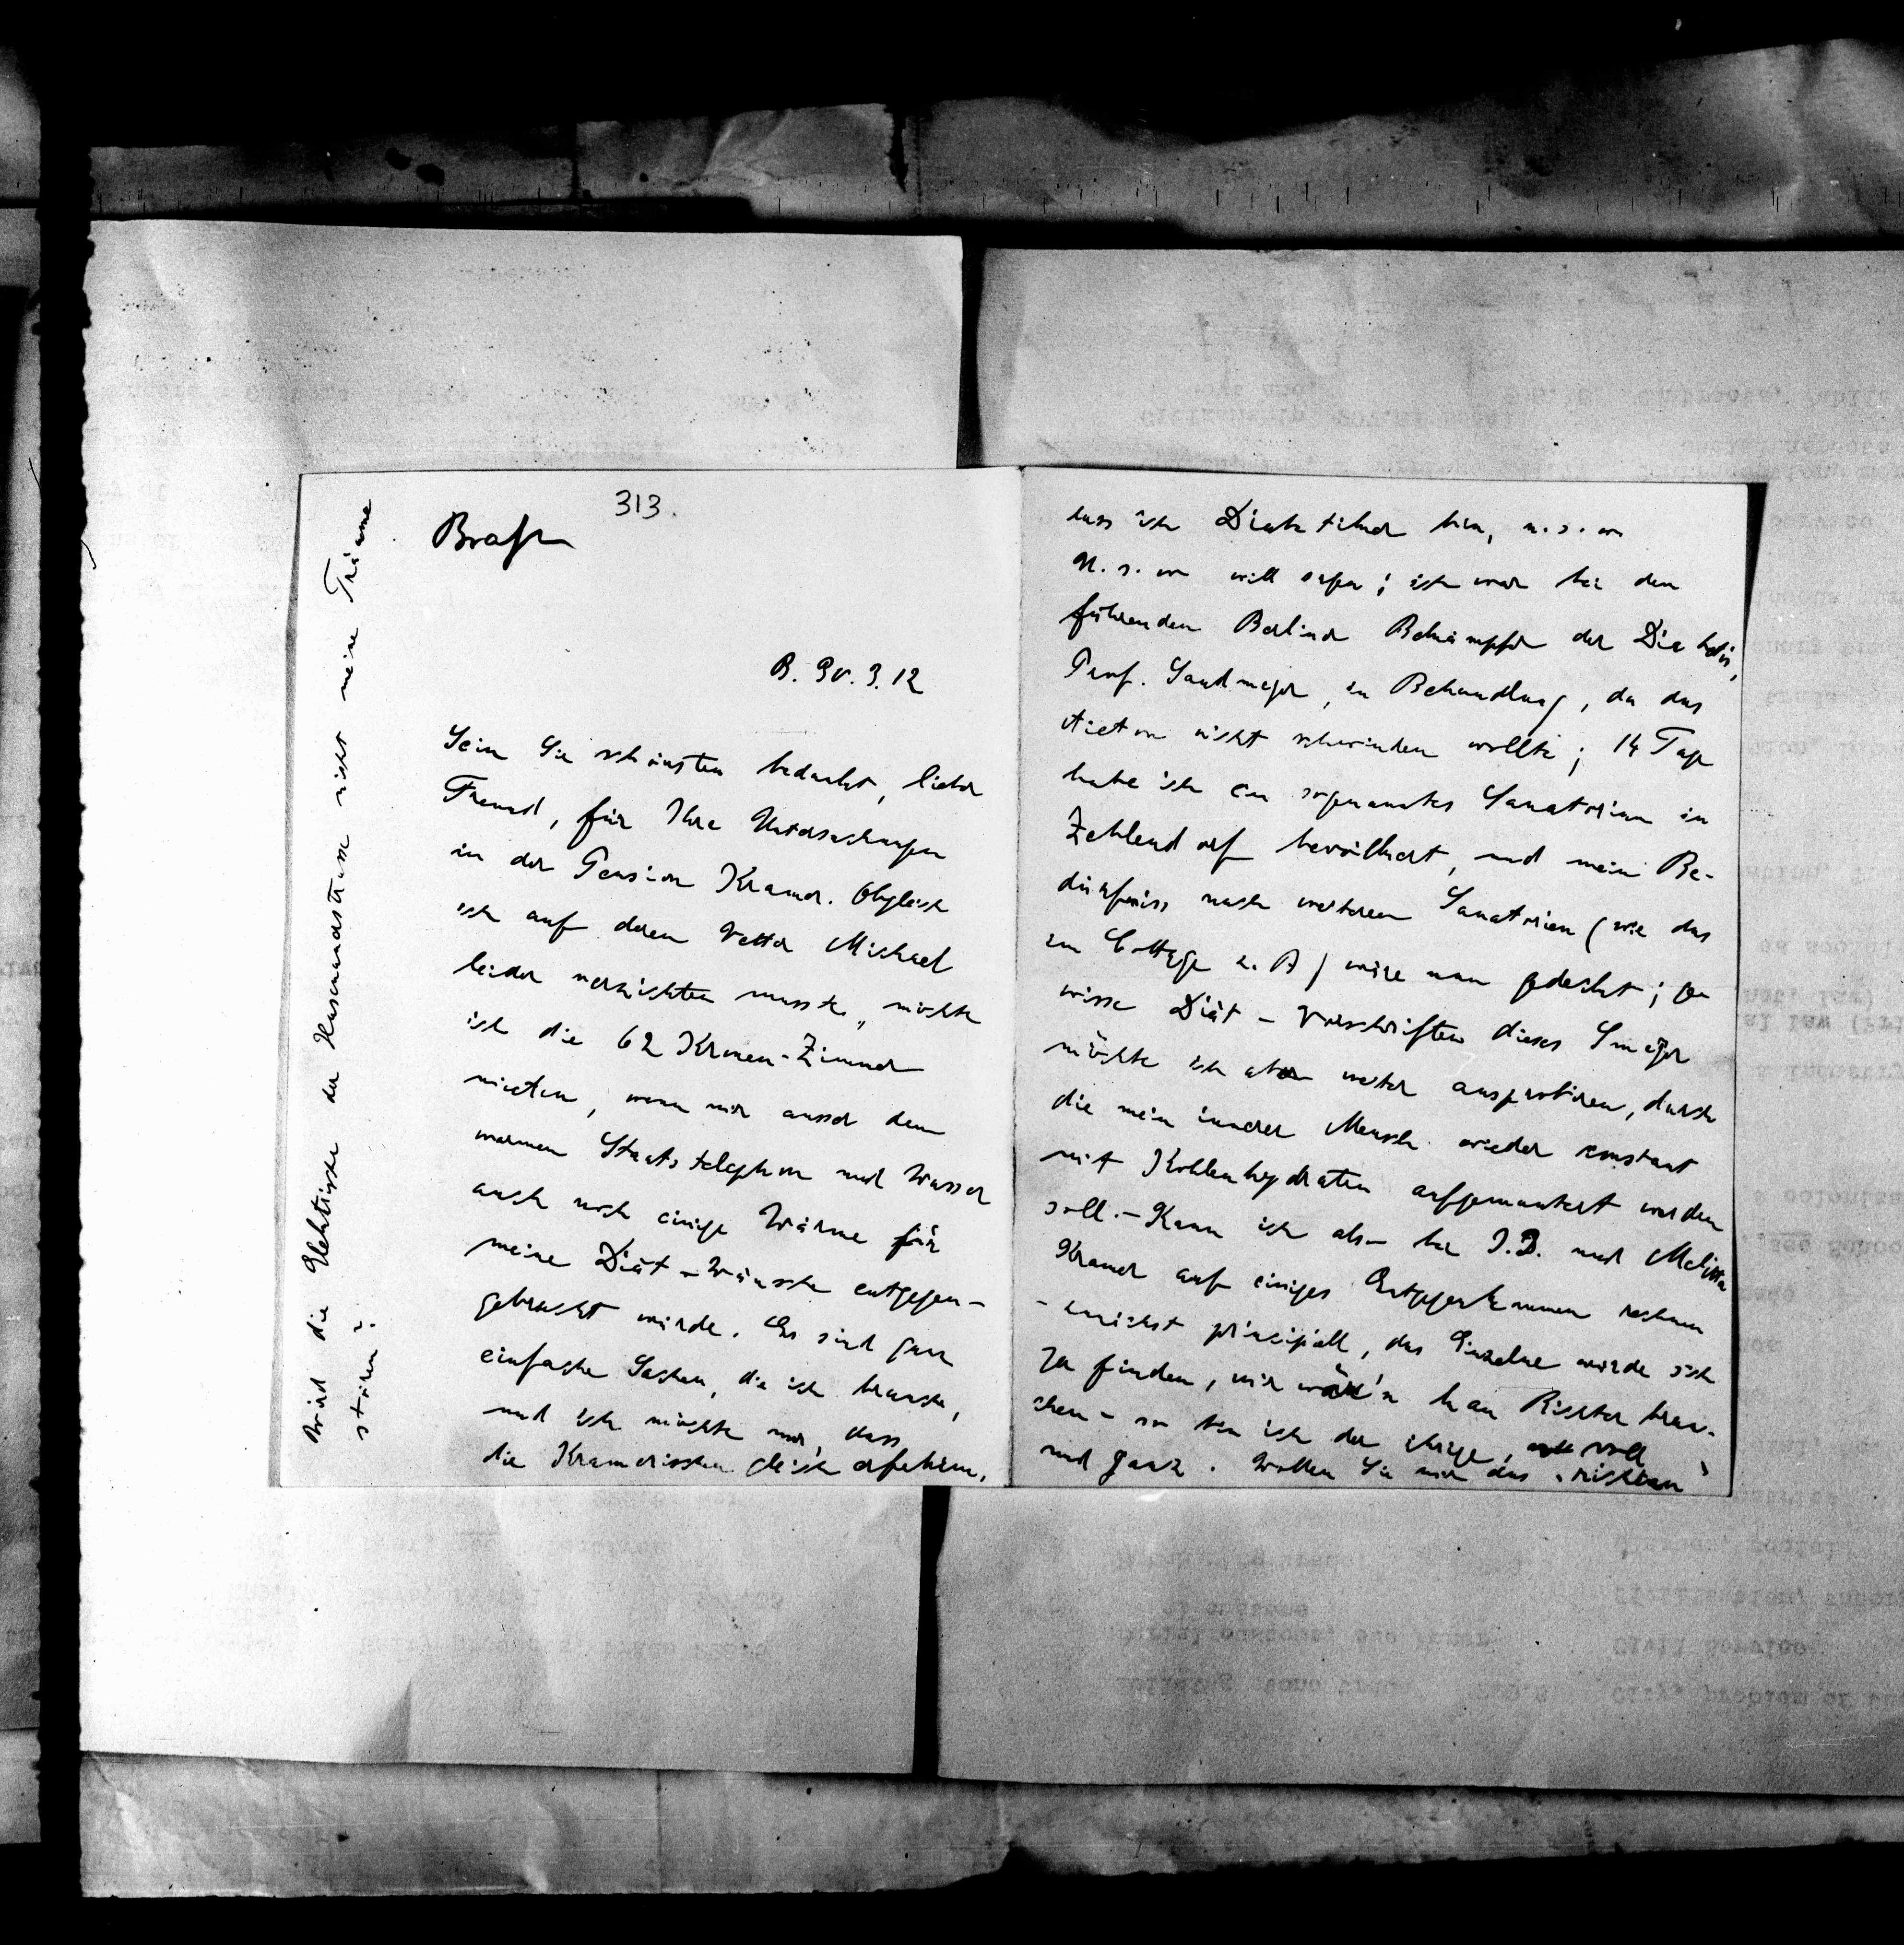 313.
Brahm
B. 30. 3. 12
Sein Sie schönsten bedankt, lieber
Freund, für Ihre Untersuchungen
in der Pension Kramer. Obgleich
ich auf deren Vetter Michael
leider verzichten musste, möchte
ich die 62 Kronen-Zimmer
mieten, wenn mir ausser dem
warmen Staatstelephon und Wasser
auch noch einige Wärme für
meine Diät-Wünsche entgegen-
gebracht würde. Es sind ganz
einfache Sachen, die ich brauche,
und ich möchte nur, dass
die Kramerischen gleich erfahren,
dass ich Diabetiker bin, u.s.w.
U.s.w. will sagen; ich war bei dem
führenden Berliner Bekämpfer der Diabetis,
Prof. Sandmeyer, in Behandlung, da das
Aceton nicht schwinden wollte; 14 Tage
habe ich ein sogenanntes Sanatorium in
Zehlendorf bevölkert, und mein Be-
dürfniss nach weiteren Sanatorien (wie das
im Cottage z. B) wäre nun gedeckt; ge-
wisse Diät-Vorschriften dieses Smeyer
möchte ich aber weiter ausprobiren, durch
die mein innerer Mensch wieder constant
mit Kohlenhydraten aufgemuntert werden
soll. – Kann ich also bei I.B. und Melitta
Kramer auf einiges Entgegenkommen rechnen
– zunächst principiell, das Einzelne würde sich
ja finden, wir wär'n kan Richter brau-
chen – so bin ich der ihrige, voll
und ganz. Wollen Sie mir das
Wird die Elektrische der Husenauerstrasse nicht meine Träume
stören?